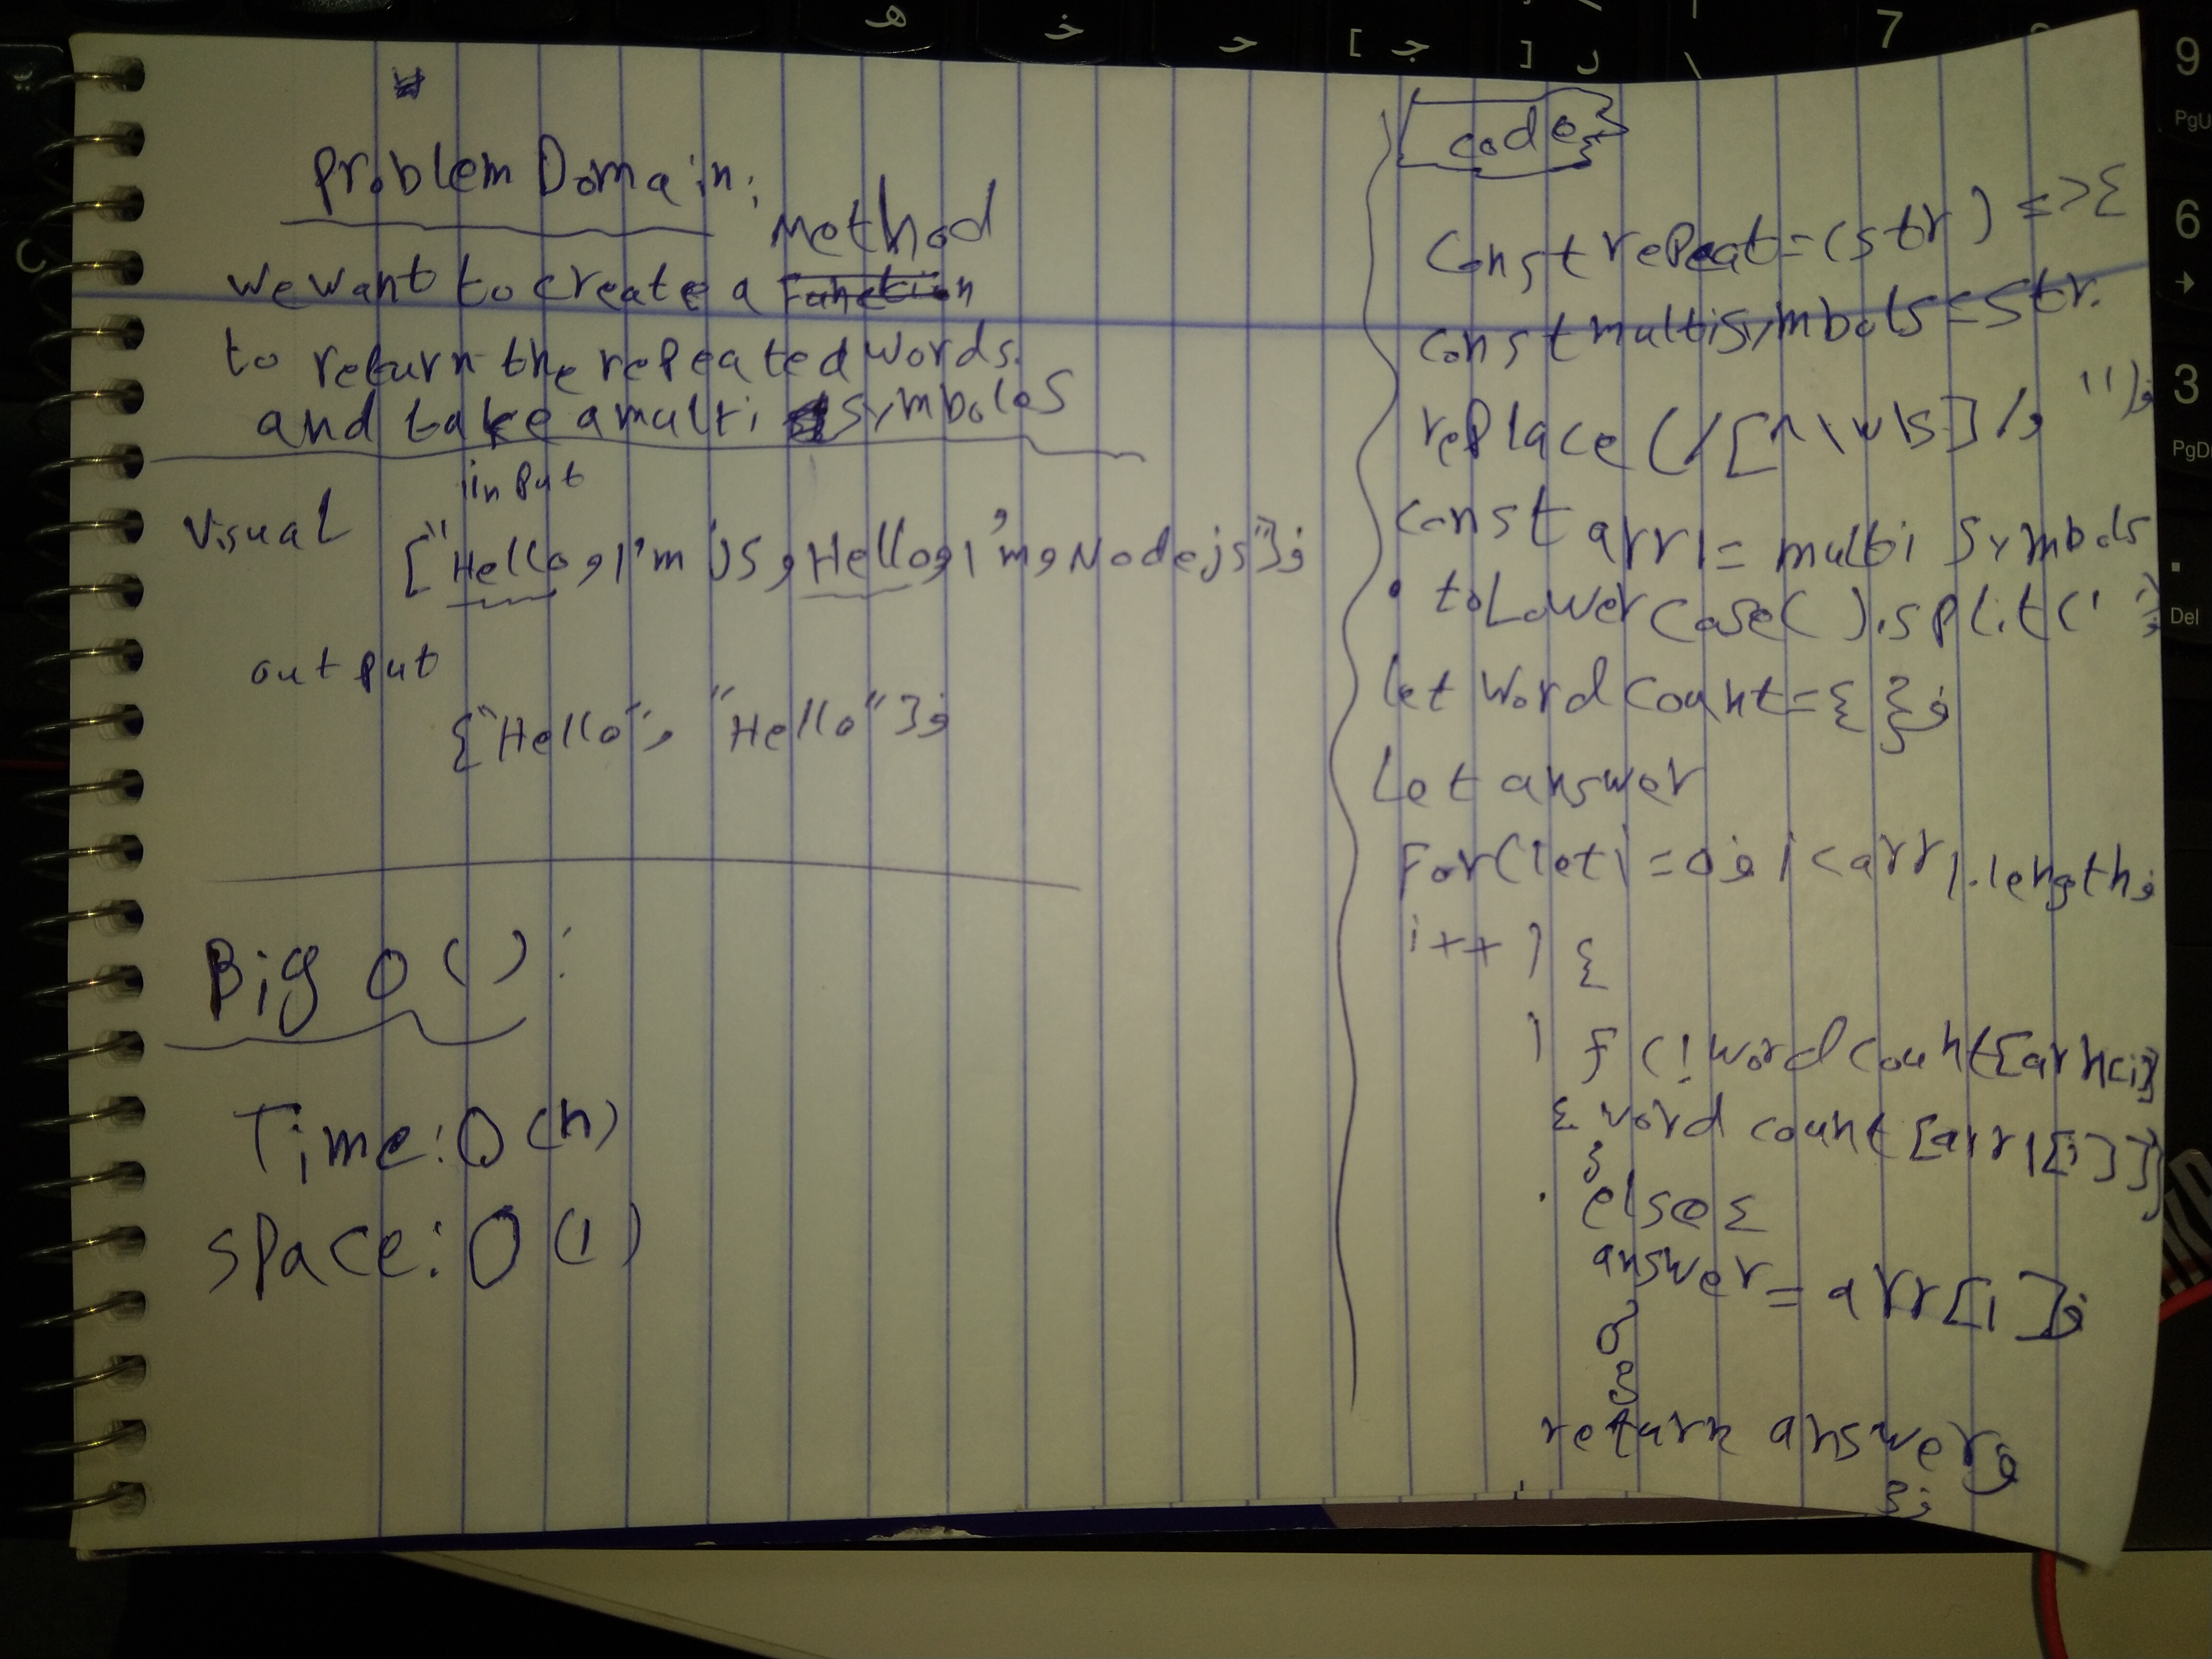 Problem Domain:
method
we want to create a function
to return the repeated words.
and take a multi symboles
Visual
input
["Hello, I'm JS, Hello, I'm, Nodejs"};
output
{"Hello", "Hello"};
Big O():
Time: O(n)
Space: O(1)
code
const repeat=(str) =>{
const multiSymbols=str.
replace(/[\n\w\s]/, "");
const arr1= multi Symbols
.toLowerCase().split(' ');
let word count={};
Let answer
For(let i=0; i<arr1.length;
i++){
if(!word count[arr[i]]
{word count[arr1[i]]
}else{
answer= arr[i];
}
return answer;
};